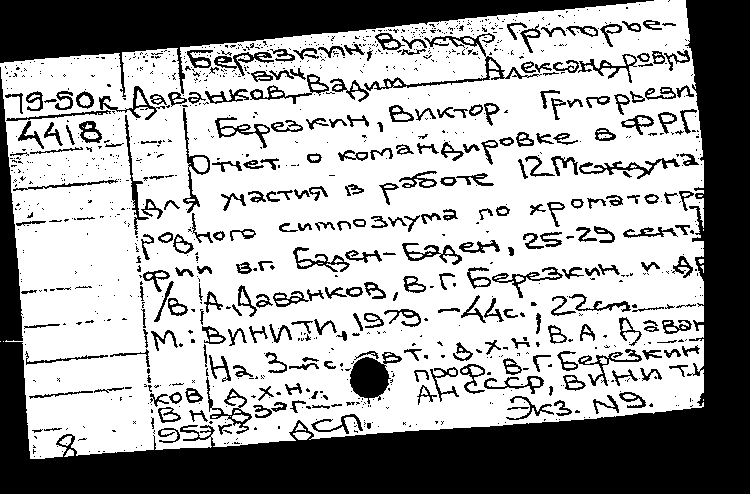 Березкин, Виктор Григорье-
вич
79-50к Даванков, Вадим Александрович
4418 Березкин, Виктор. Григорьеви
Отчет о командировке в ФРГ
[для участия в работе 12 Междуна-
родного симпозиума по хроматогра
фии в г. Баден-Баден, 25-29 сент.]
/В. А. Даванков, В. Г. Березкин и др
М.: ВИНИТИ, 1979. -44с.; 22см.
На 3-й с. авт.: д.х.н. В.А. Даван
ков, д.х.н., проф. В.Г. Березкин
В надзаг. АН СССР, ВИНИТИ
95экз. ДСП. Экз. N9.
8